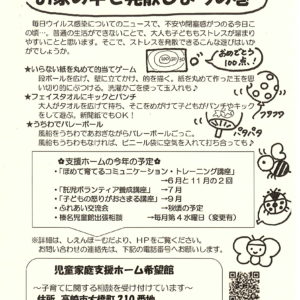 毎日ウイルス感染についてのニュースで、不安や閉塞感がつのる今日こ
の頃…。普通の生活ができないことで、大人も子どももストレスが溜まり
やすいことと思います。そこで、ストレスを発散できるこんな遊びはいか
がでしょうか。
おめでとう
100点!
★いらない紙を丸めて的当てゲーム
段ボールを広げ、壁に立てかけ、的を描く。紙を丸めて作った玉を思
い切り的にぶつける。洗濯かごを使って玉入れも♪
★フェイスタオルにキックとパンチ
大人がタオルを広げて持ち、そこをめがけて子どもがパンチやキック
をして遊ぶ。新聞紙でもOK!
★うちわでバレーボール
風船をうちわであおぎながらバレーボールごっこ。
風船をもうちわもなければ、ビニール袋に空気を入れて打ち合っても♪
◆支援ホームの今年の予定◆
・「ほめて育てるコミュニケーション・トレーニング講座」
→6月と11月の2回
・「託児ボランティア養成講座」→7月
・「子どもの怒りがおさまる講座」→9月
・ふれあい交流会 →秋頃の予定
・榛名児童館出張相談 →毎月第4水曜日(変更有)
※詳細は、しえんほーむだより、HPをご覧ください。
お問い合わせ等ございましたら、お気軽に支援ホームまで、下
記の電話番号へお願いします。
児童家庭支援ホーム希望館
～子育てに関する相談は受けつけています～
住所 高崎市大橋町210番地